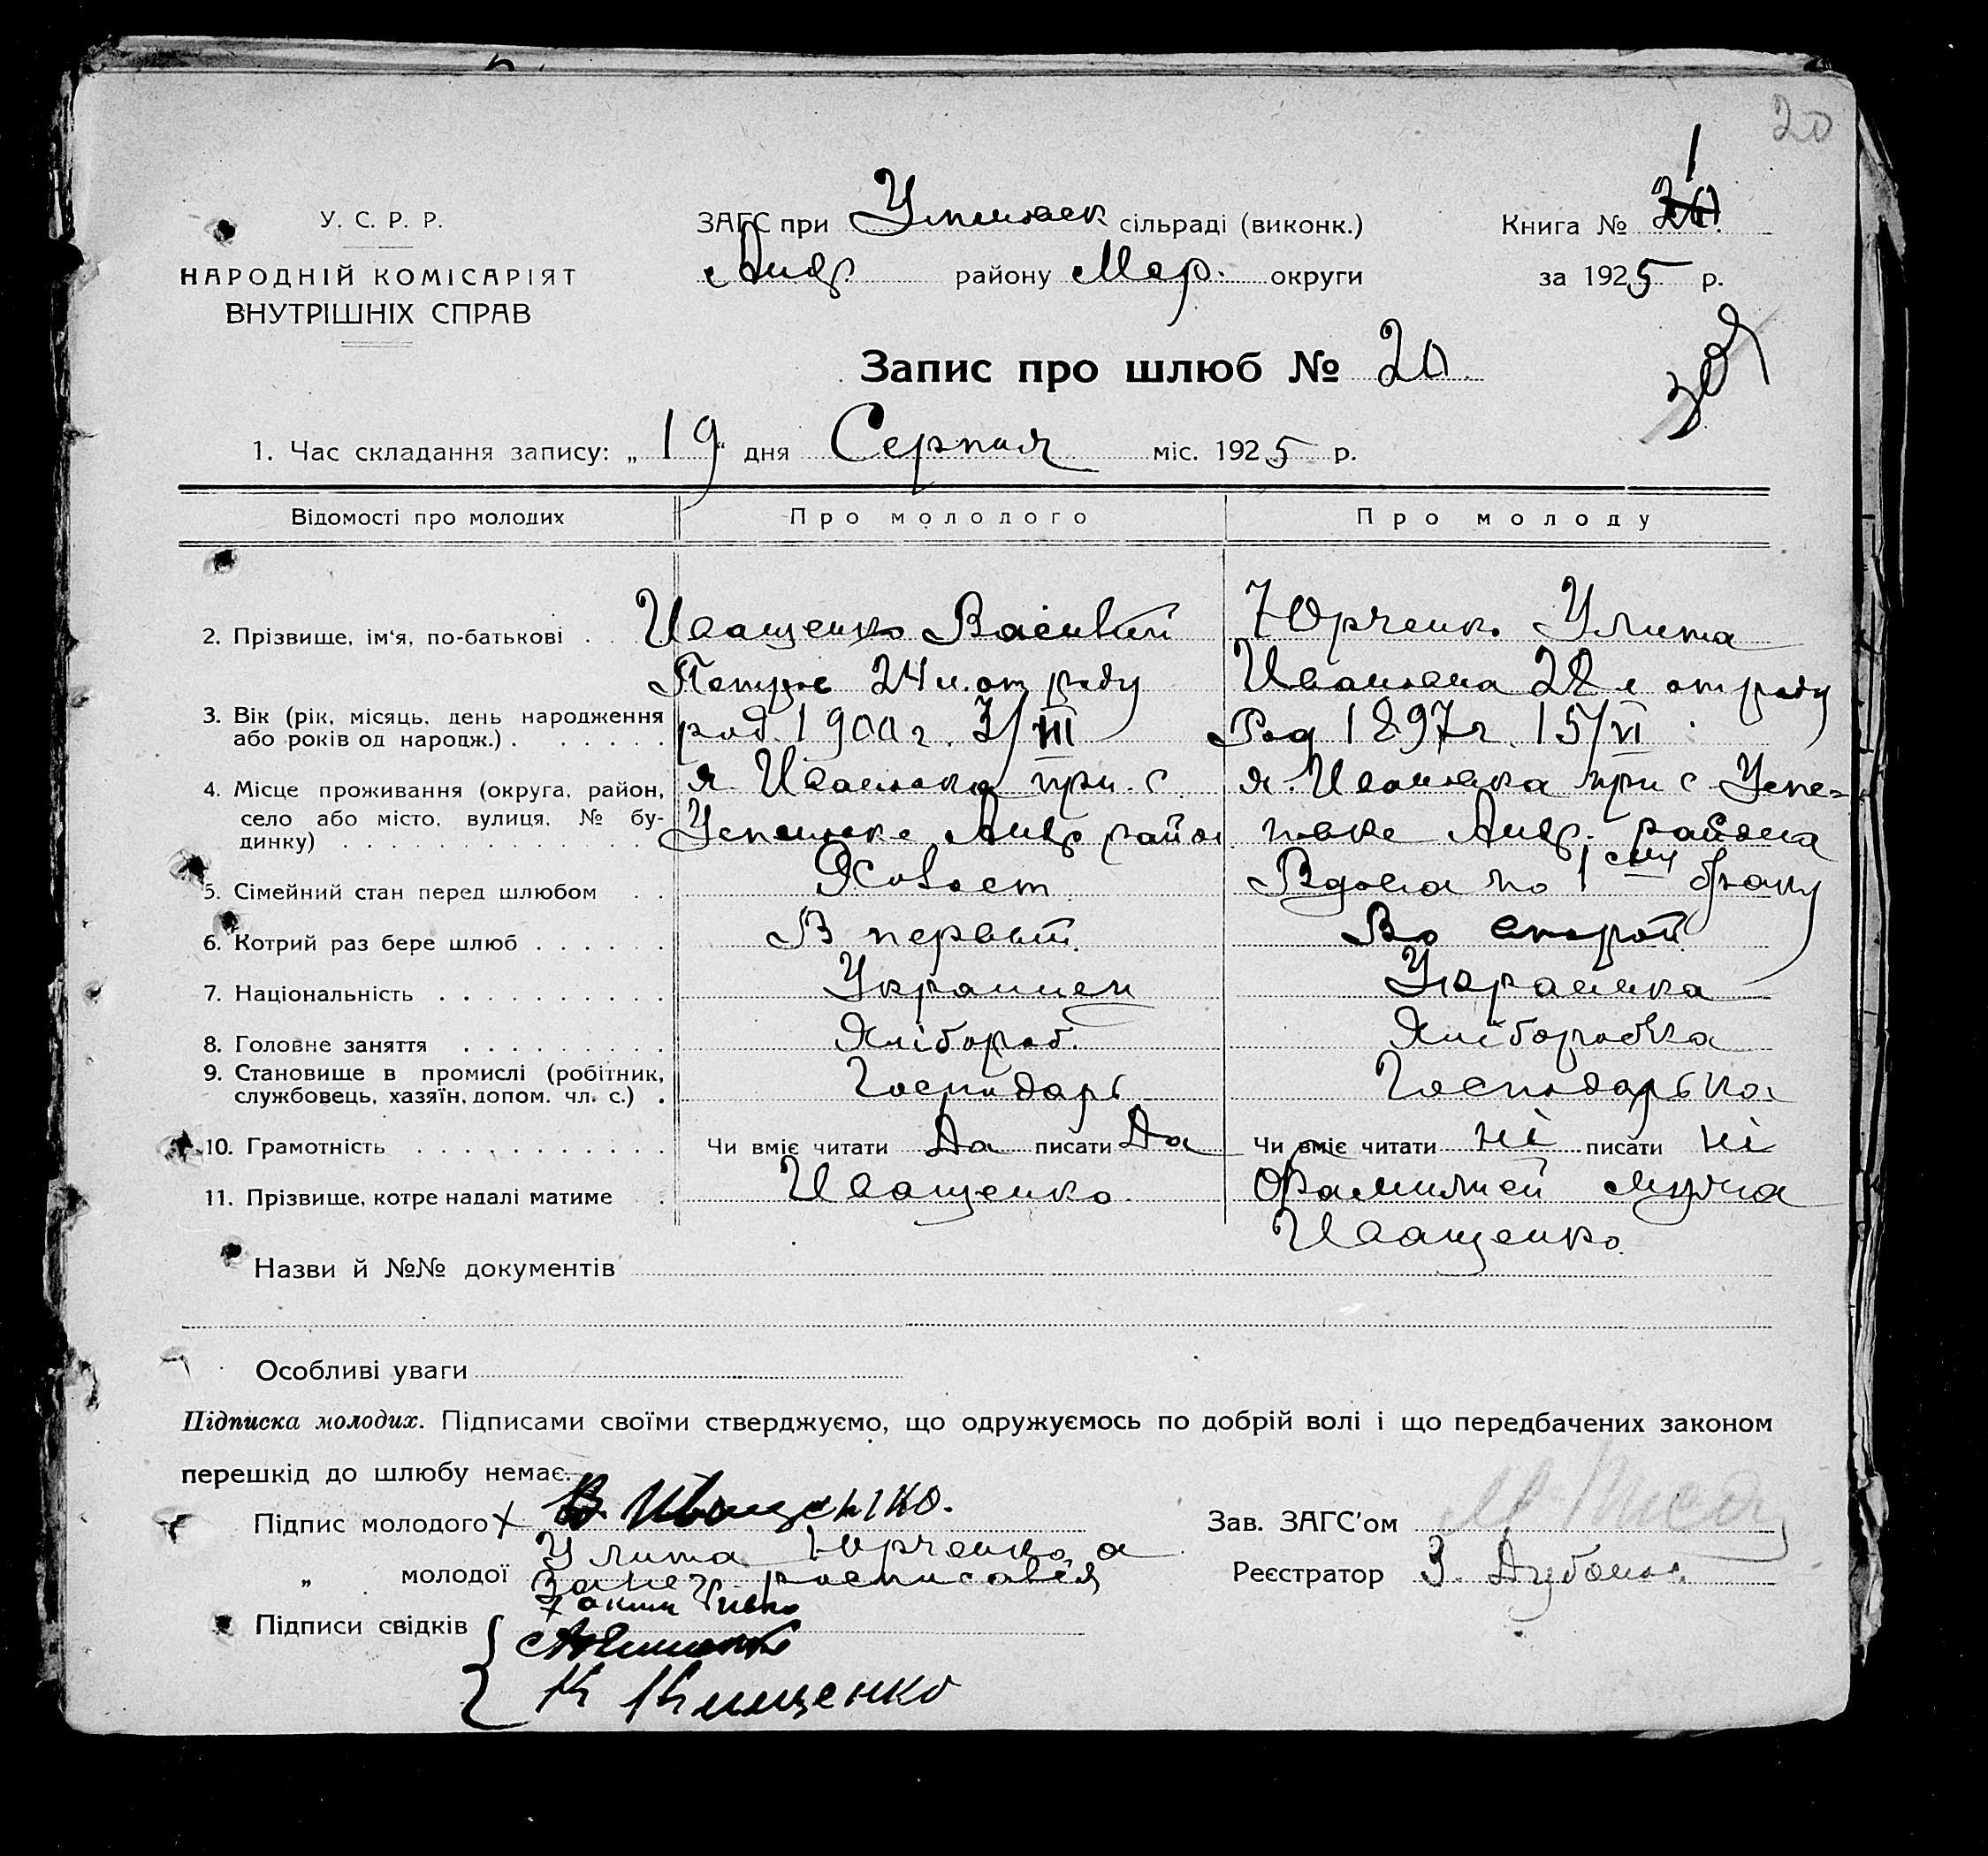 20
1
У. С. Р. Р.
НАРОДНІЙ КОМІСАРІЯТ
ВНУТРІШНІХ СПРАВ
ЗАГС при сільраді (виконк.)
Андр. району Мар. округи
Книга № 20
за 1925 р.
Запис про шлюб № 20.
1. Час складання запису: „19“ дня Серпня міс. 1925 р.
Відомості про молодих Про молодого Про молоду
2. Прізвище, ім'я, по-батькові . . Иващенко Василий Юрченко Улита
Петров 24 л. от роду Ивановна 28 л от роду
3. Вік (рік, місяць, день народження
або років од народж.) . . . . . . род. 1900 г. 3/III Род 1897 г. 15/VI
4. Місце проживання (округа, район, х. Ивановка при с. х. Ивановка при с Успе-
село або місто, вулиця, № бу- Успеновке Андр район новке Андр. района
динку) . . . . . . . . . . . .
5. Сімейний стан перед шлюбом . . Холост Вдова по 1му браку
6. Котрий раз бере шлюб . . . . . . В первый. Во второй
7. Національність . . . . . . . . . . Украинец Украинка
8. Головне заняття . . . . . . . . . Хлібороб. Хлiборобка
9. Становище в промислі (робітник,
службовець, хазяїн, допом. чл. с.) . Господарь Господарька
10. Грамотність . . . . . . . . . . . Чи вміє читати Да писати Да Чи вміє читати ні писати ні
11. Прізвище, котре надалі матиме . Иващенко. Фамилией мужа
Иващенко.
Назви й №№ документів
Особливі уваги
Підписка молодих. Підписами своїми стверджуємо, що одружуємось по добрій волі і що передбачених законом
перешкід до шлюбу немає.
Підпис молодого х В. Иващенко.
Зав. ЗАГС'ом
„ молодої Улита Юрченко а
за нег. росписався
Реєстратор З.
Підписи свідків
К Кищенко